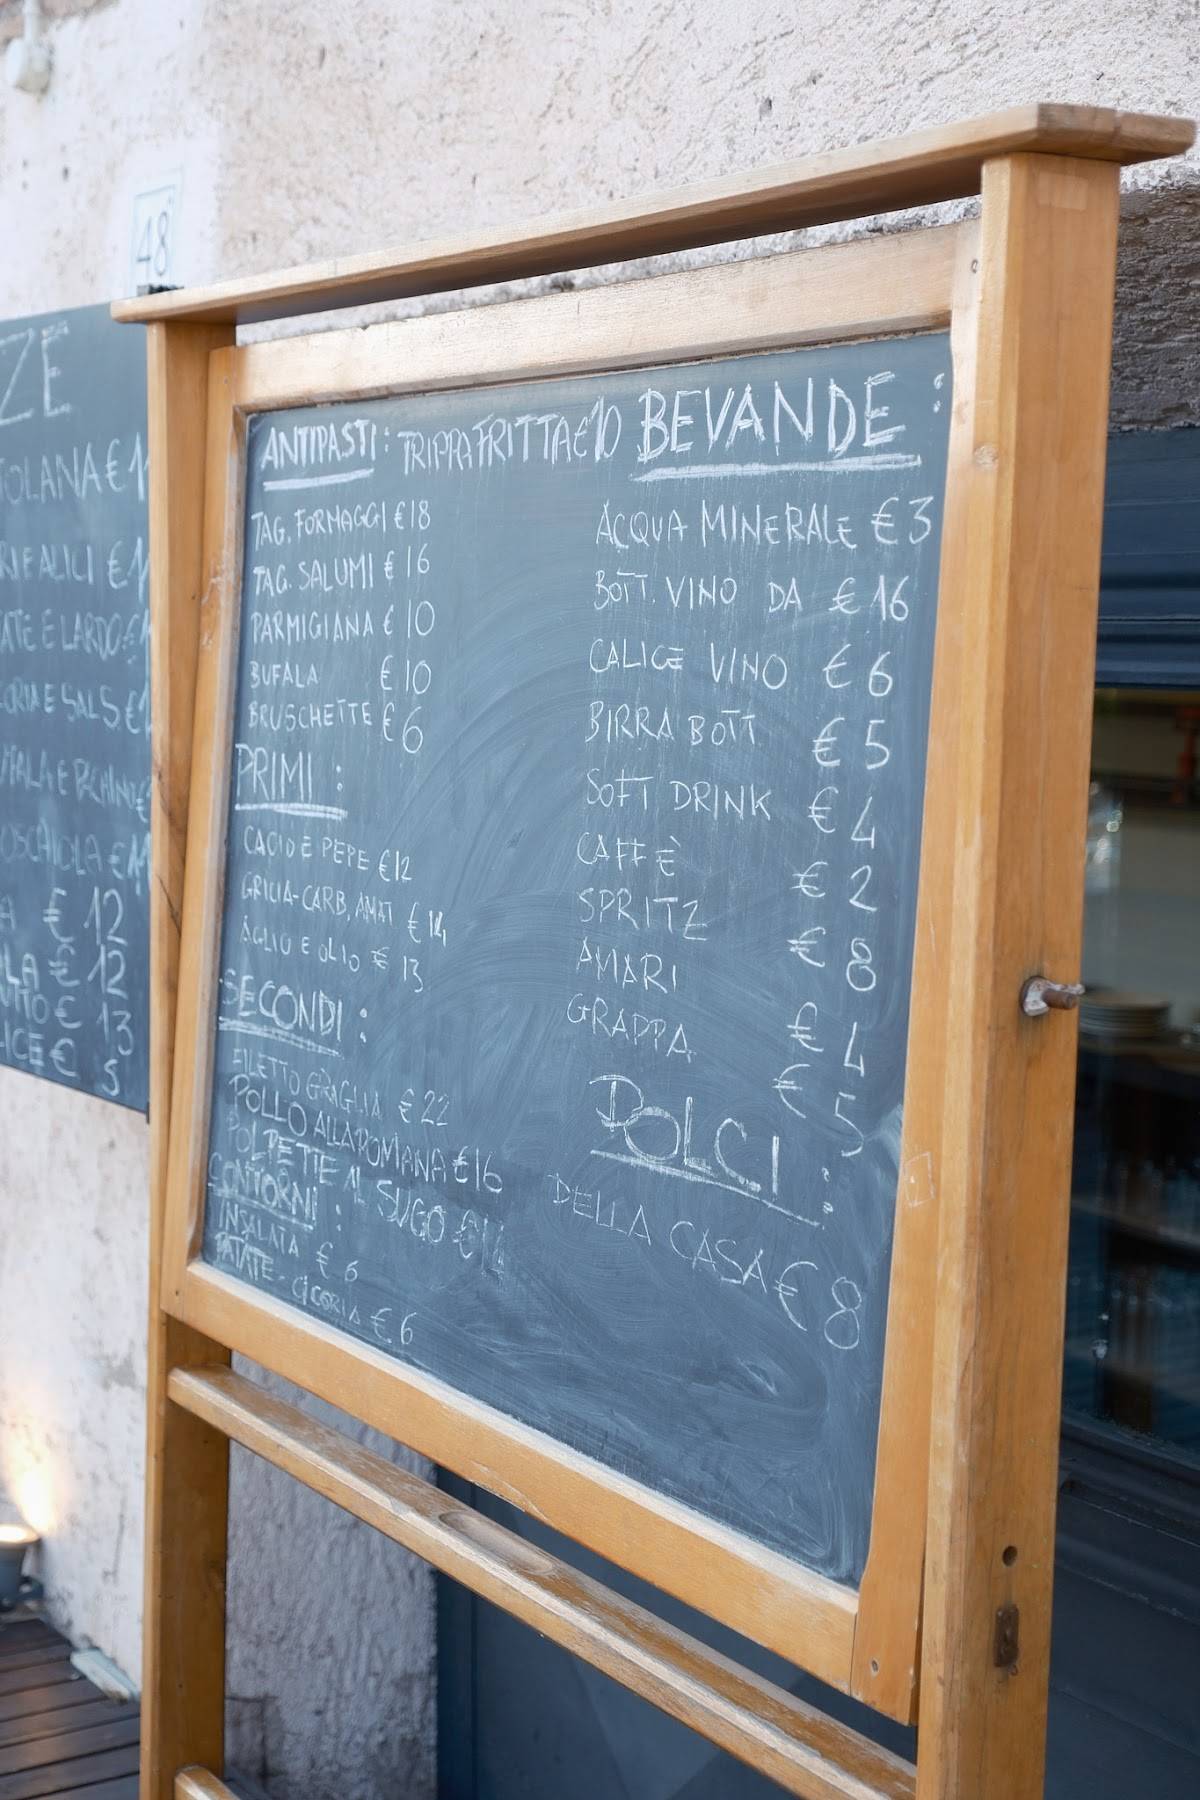 48
ZE
TOLANA € 1
RIE ALICI € 1
ATE E LARDO €
CORIA E SALS. €
€
€ 12
€ 12
€ 13
ICE € 5
ANTIPASTI: TRIPPA FRITTA €10
TAG. FORMAGGI €18
TAG. SALUMI € 16
PARMIGIANA € 10
BUFALA € 10
BRUSCHETTE € 6
PRIMI:
CACIO E PEPE €12
GRICIA-CARB, AMAT € 14
AGLIO E OLIO € 13
SECONDI:
FILETTO GRAGLIA € 22
POLLO ALLA ROMANA €16
POLPETTE AL SUGO €14
CONTORNI:
INSALATA € 6
PATATE- CICORIA € 6
BEVANDE:
ACQUA MINERALE €3
BOTT. VINO DA € 16
CALICE VINO € 6
BIRRA BOTT € 5
SOFT DRINK € 4
CAFFÈ € 2
SPRITZ € 8
AMARI € 4
GRAPPA € 5
DOLCI:
DELLA CASA € 8